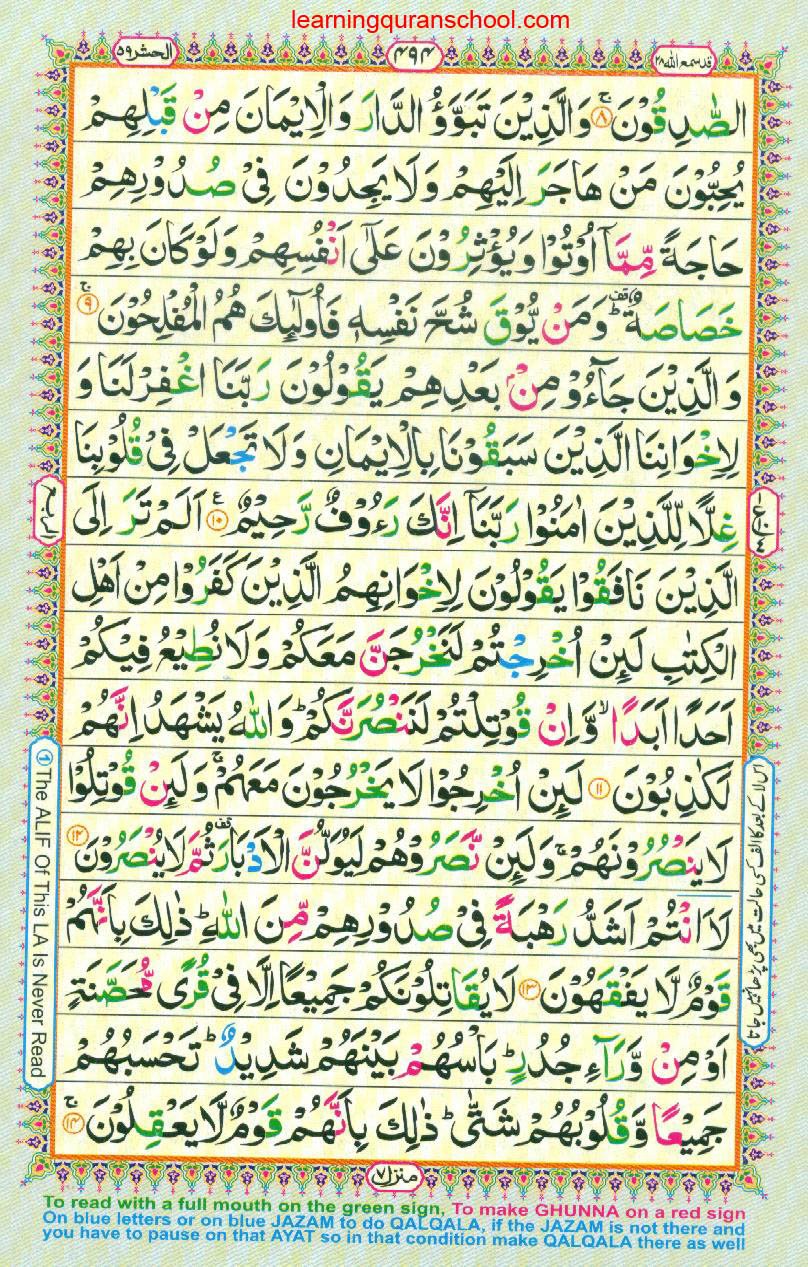 learningquranschool.com
قد سمع الله ٢٨
٤٩٤
الحشر ٥٩
الصّٰدِقُوْنَ ۚ ﴿۸﴾ وَالَّذِيْنَ تَبَوَّؤُ الدَّارَ وَالْاِيْمَانَ مِنْ قَبْلِهِمْ
يُحِبُّوْنَ مَنْ هَاجَرَ اِلَيْهِمْ وَلَا يَجِدُوْنَ فِىْ صُدُوْرِهِمْ
حَاجَةً مِّمَّاۤ اُوْتُوْا وَيُؤْثِرُوْنَ عَلٰٓى اَنْفُسِهِمْ وَلَوْ كَانَ بِهِمْ
خَصَاصَةٌ ؕ وَمَنْ يُّوْقَ شُحَّ نَفْسِهٖ فَاُولٰٓئِكَ هُمُ الْمُفْلِحُوْنَ ۚ ﴿۹﴾
وَ الَّذِيْنَ جَآءُوْ مِنْۢ بَعْدِهِمْ يَقُوْلُوْنَ رَبَّنَا اغْفِرْ لَنَا وَ
لِاِخْوَانِنَا الَّذِيْنَ سَبَقُوْنَا بِالْاِيْمَانِ وَلَا تَجْعَلْ فِىْ قُلُوْبِنَا
غِلًّا لِّلَّذِيْنَ اٰمَنُوْا رَبَّنَاۤ اِنَّكَ رَءُوْفٌ رَّحِيْمٌ ﴿۱۰﴾ اَلَمْ تَرَ اِلَى
الَّذِيْنَ نَافَقُوْا يَقُوْلُوْنَ لِاِخْوَانِهِمُ الَّذِيْنَ كَفَرُوْا مِنْ اَهْلِ
الْكِتٰبِ لَئِنْ اُخْرِجْتُمْ لَنَخْرُجَنَّ مَعَكُمْ وَلَا نُطِيْعُ فِيْكُمْ
اَحَدًا اَبَدًا ۙ وَّاِنْ قُوْتِلْتُمْ لَنَنْصُرَنَّكُمْ ؕ وَاللّٰهُ يَشْهَدُ اِنَّهُمْ
لَكٰذِبُوْنَ ﴿۱۱﴾ لَئِنْ اُخْرِجُوْا لَا يَخْرُجُوْنَ مَعَهُمْ ۚ وَلَئِنْ قُوْتِلُوْا
لَا يَنْصُرُوْنَهُمْ ۚ وَلَئِنْ نَّصَرُوْهُمْ لَيُوَلُّنَّ الْاَدْبَارَ ثُمَّ لَا يُنْصَرُوْنَ ﴿۱۲﴾
لَا۟اَنْتُمْ اَشَدُّ رَهْبَةً فِىْ صُدُوْرِهِمْ مِّنَ اللّٰهِ ؕ ذٰلِكَ بِاَنَّهُمْ
قَوْمٌ لَّا يَفْقَهُوْنَ ﴿۱۳﴾ لَا يُقَاتِلُوْنَكُمْ جَمِيْعًا اِلَّا فِىْ قُرًى مُّحَصَّنَةٍ
اَوْ مِنْ وَّرَآءِ جُدُرٍ ؕ بَاْسُهُمْ بَيْنَهُمْ شَدِيْدٌ ؕ تَحْسَبُهُمْ
جَمِيْعًا وَّقُلُوْبُهُمْ شَتّٰى ؕ ذٰلِكَ بِاَنَّهُمْ قَوْمٌ لَّا يَعْقِلُوْنَ ۚ ﴿۱۴﴾
الربع
① The ALIF Of This LA Is Never Read
اس لا کے بعد کا الف کسی حالت میں بھی پڑھا نہیں جاتا
منزل ٧
To read with a full mouth on the green sign, To make GHUNNA on a red sign
On blue letters or on blue JAZAM to do QALQALA, if the JAZAM is not there and
you have to pause on that AYAT so in that condition make QALQALA there as well